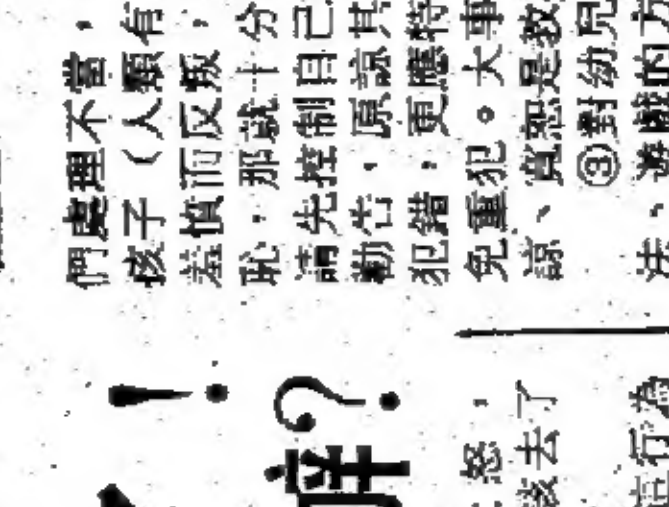 們處理不當，
孩子（人類有
羞憤而反叛，
恥，那就十分
請先控制自己
勸告，原諒其
犯錯，更應特
免重犯。大事
諒、寬恕是教
③對幼兒
法、遊戲的方
！
？
怒，
該去了
行為